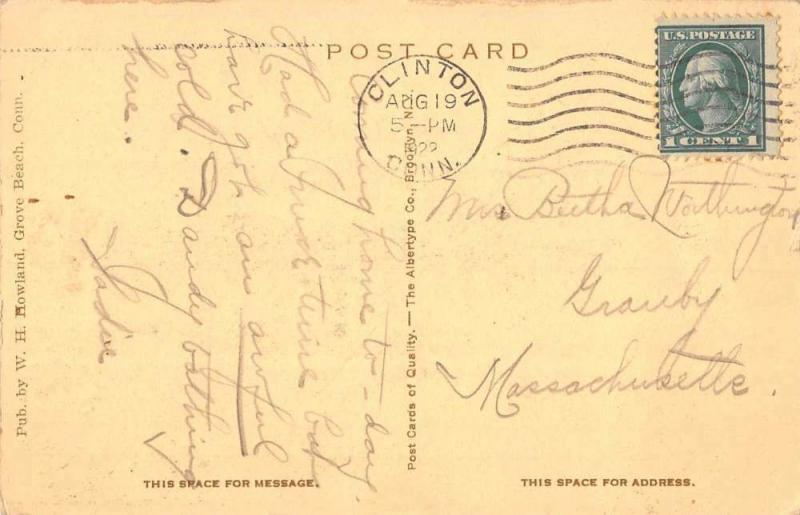 POST CARD
CLINTON
AUG 19
5-PM
1922
CONN.
U.S. POSTAGE
1 CENT 1
Coming home to-day.
Had a nice time but
have got an awful
cold. Dandy bathing
here.
Sadie
Mrs Bertha Worthington
Granby
Massachusetts.
Pub. by W. H. Howland, Grove Beach, Conn.
Post Cards of Quality. — The Albertype Co., Brooklyn, N.Y.
THIS SPACE FOR MESSAGE.
THIS SPACE FOR ADDRESS.